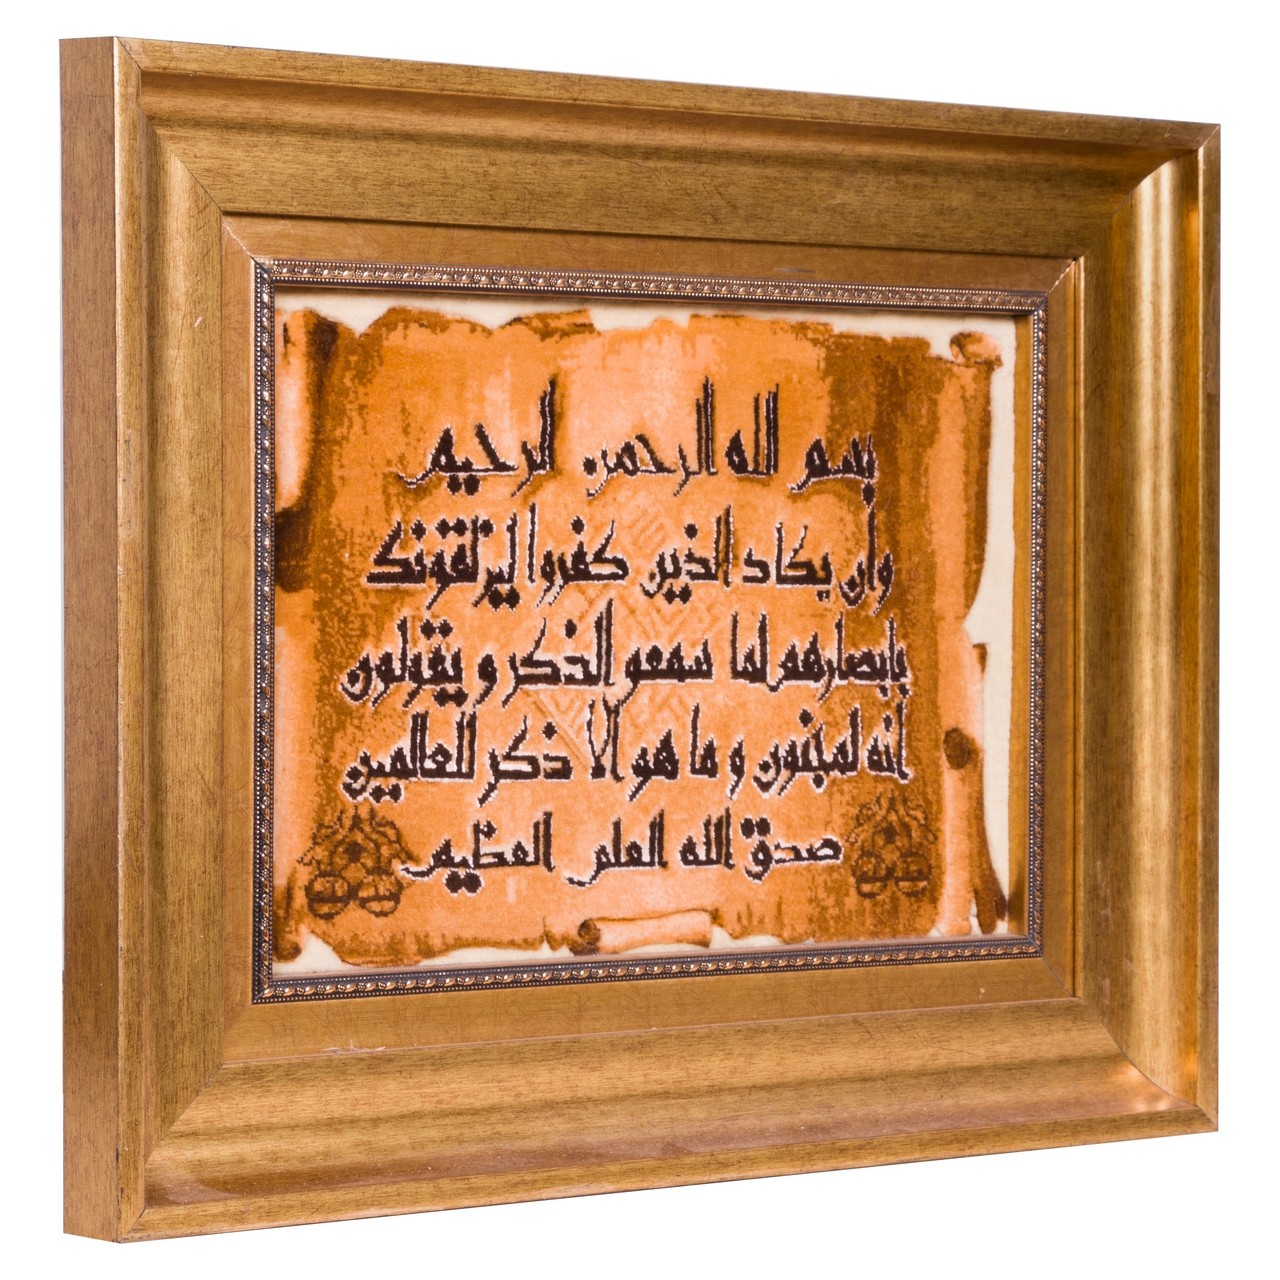 بسم الله الرحمن الرحيم
وأن يكاد الذين كفروا ليزلقونك
بابصارهم لما سمعو الذكر و يقولون
انه لمجنون و ما هو الا ذكر للعالمين
صدق الله العلی العظيم